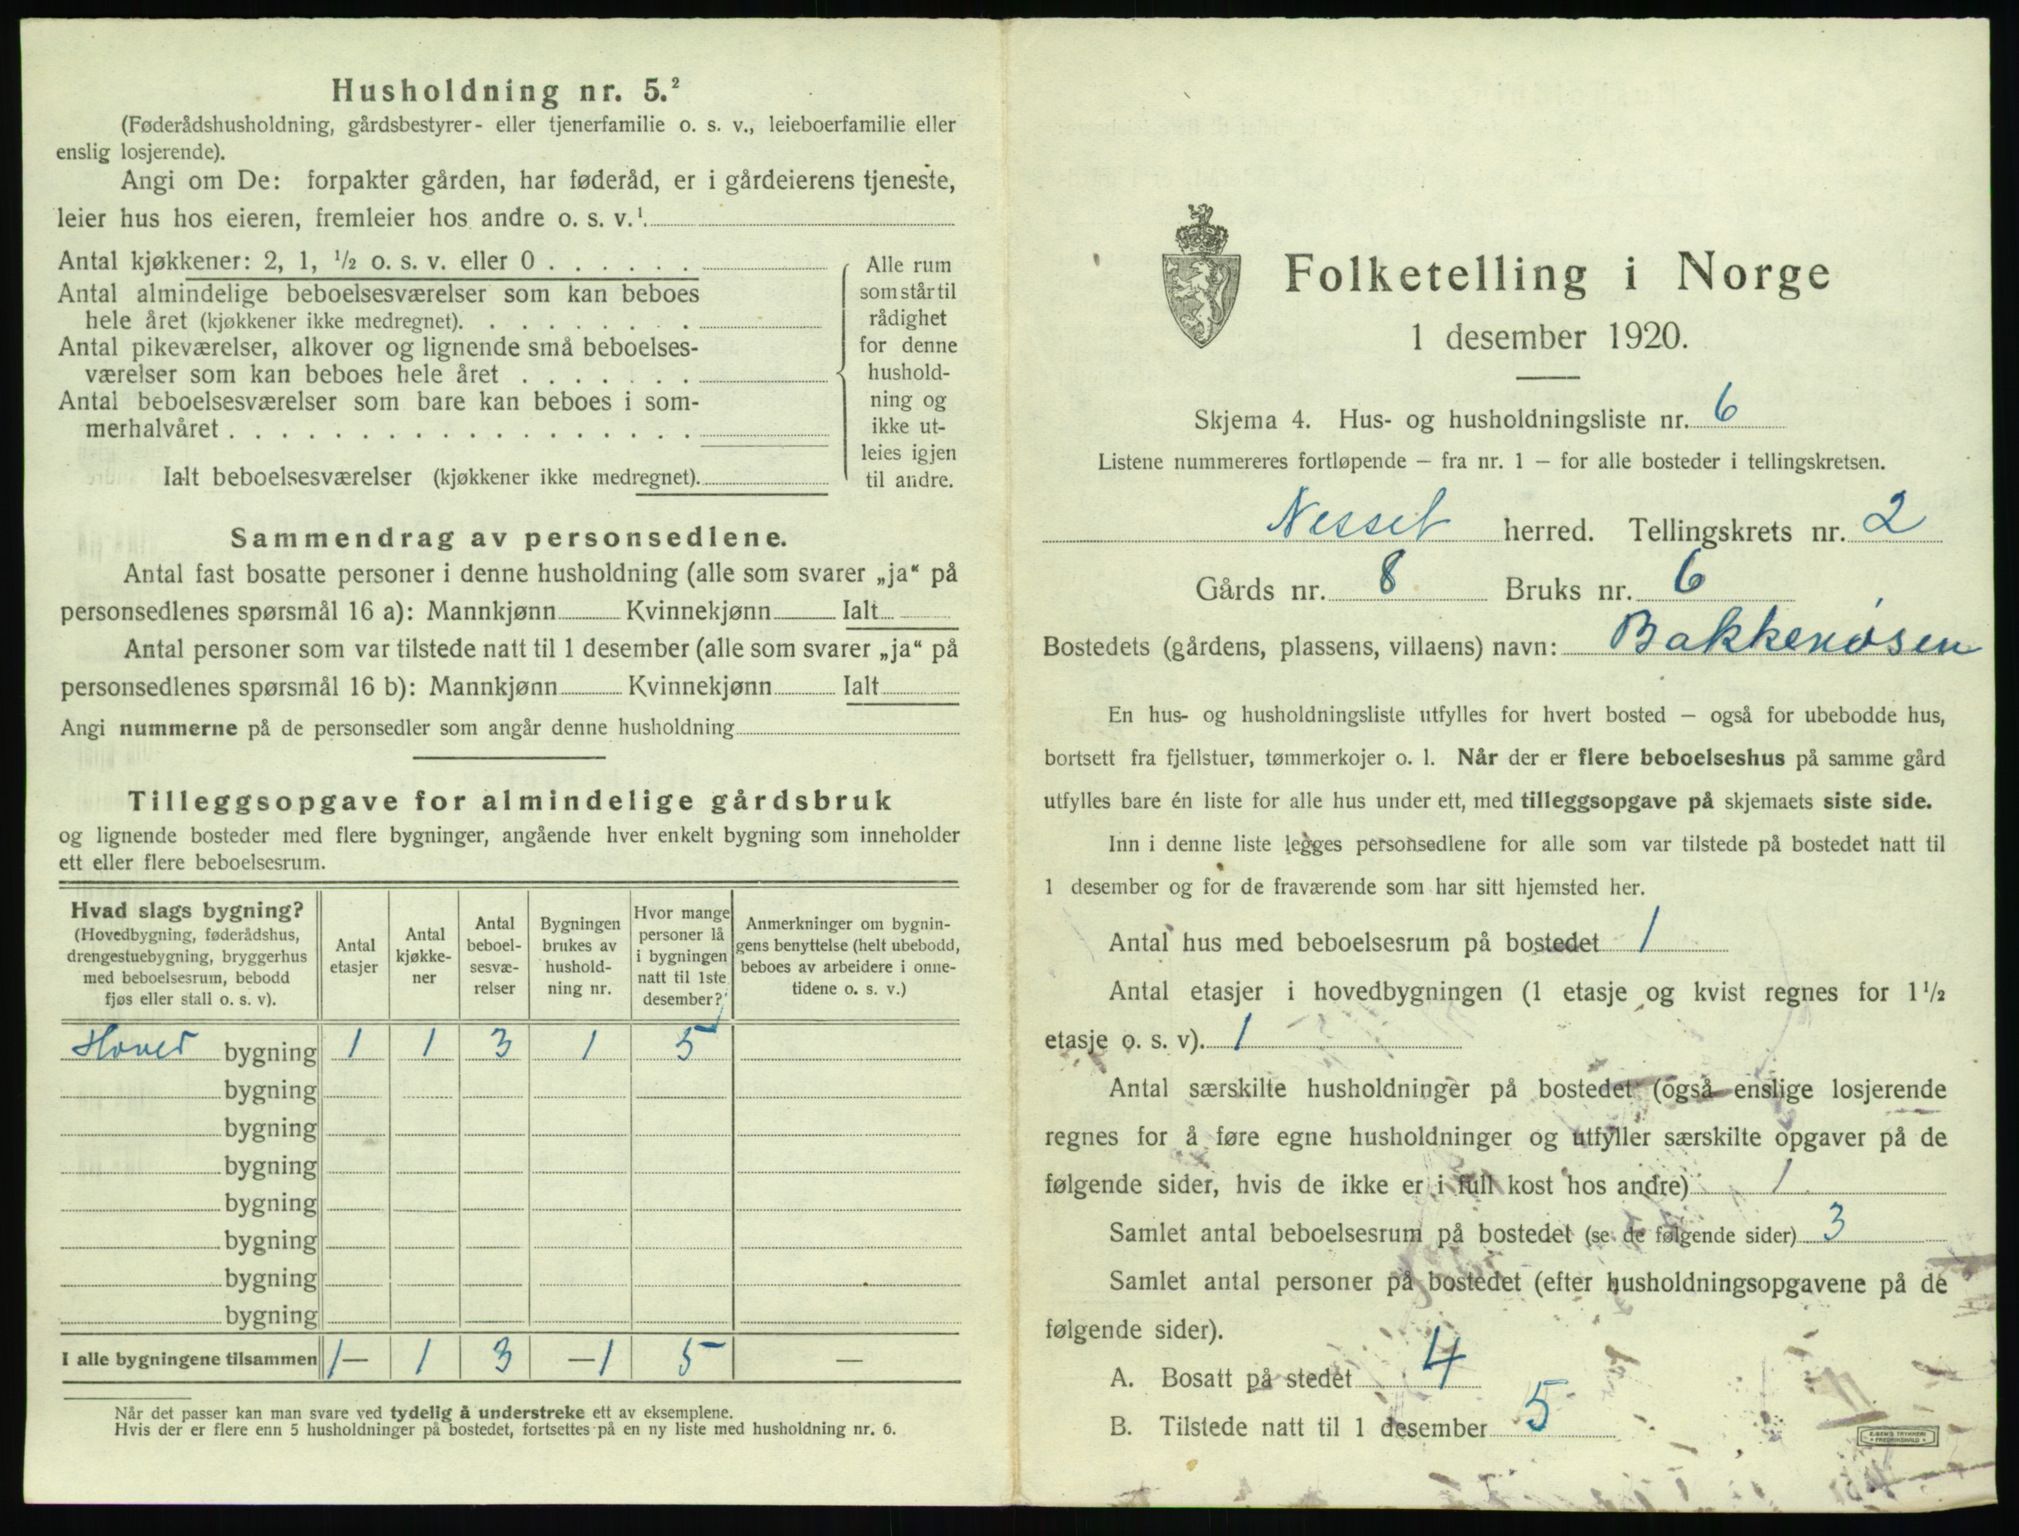 Husholdning nr. 5.²
(Føderådshusholdning, gårdsbestyrer- eller tjenerfamilie o. s. v., leieboerfamilie eller
enslig losjerende).
Angi om De: forpakter gården, har føderåd, er i gårdeierens tjeneste,
leier hus hos eieren, fremleier hos andre o. s. v.¹
Antal kjøkkener: 2, 1, ½ o. s. v. eller 0 . . . . . .
Antal almindelige beboelsesværelser som kan beboes
hele året (kjøkkener ikke medregnet). . . . . . . . .
Antal pikeværelser, alkover og lignende små beboelses-
værelser som kan beboes hele året . . . . . . .
Antal beboelsesværelser som bare kan beboes i som-
merhalvåret . . . . . . . . . . . . . . . . . .
Ialt beboelsesværelser (kjøkkener ikke medregnet).
Alle rum
som står til
rådighet
for denne
hushold-
ning og
ikke ut-
leies igjen
til andre.
Sammendrag av personsedlene.
Antal fast bosatte personer i denne husholdning (alle som svarer „ja“ på
personsedlenes spørsmål 16 a): Mannkjønn Kvinnekjønn Ialt
Antal personer som var tilstede natt til 1 desember (alle som svarer „ja“ på
personsedlenes spørsmål 16 b): Mannkjønn Kvinnekjønn Ialt
Angi nummerne på de personsedler som angår denne husholdning
Tilleggsopgave for almindelige gårdsbruk
og lignende bosteder med flere bygninger, angående hver enkelt bygning som inneholder
ett eller flere beboelsesrum.
Hvad slags bygning?
(Hovedbygning, føderådshus,
drengestuebygning, bryggerhus
med beboelsesrum, bebodd
fjøs eller stall o. s. v).
Antal
etasjer
Antal
kjøkke-
ner
Antal
beboel-
sesvæ-
relser
Bygningen
brukes av
hushold-
ning nr.
Hvor mange
personer lå
i bygningen
natt til 1ste
desember?
Anmerkninger om bygnin-
gens benyttelse (helt ubebodd,
beboes av arbeidere i onne-
tidene o. s. v.)
Hoved bygning 1 1 3 1 5
bygning
bygning
bygning
bygning
bygning
bygning
bygning
I alle bygningene tilsammen 1 — 1 3 — 1 5 —
Når det passer kan man svare ved tydelig å understreke ett av eksemplene.
Hvis der er flere enn 5 husholdninger på bostedet, fortsettes på en ny liste med husholdning nr. 6.
Folketelling i Norge
1 desember 1920.
Skjema 4. Hus- og husholdningsliste nr. 6
Listene nummereres fortløpende – fra nr. 1 – for alle bosteder i tellingskretsen.
Nesset herred. Tellingskrets nr. 2
Gårds nr. 8 Bruks nr. 6
Bostedets (gårdens, plassens, villaens) navn: Bakkerøsen
En hus- og husholdningsliste utfylles for hvert bosted – også for ubebodde hus,
bortsett fra fjellstuer, tømmerkojer o. l. Når der er flere beboelseshus på samme gård
utfylles bare én liste for alle hus under ett, med tilleggsopgave på skjemaets siste side.
Inn i denne liste legges personsedlene for alle som var tilstede på bostedet natt til
1 desember og for de fraværende som har sitt hjemsted her.
Antal hus med beboelsesrum på bostedet 1
Antal etasjer i hovedbygningen (1 etasje og kvist regnes for 1½
etasje o. s. v). 1
Antal særskilte husholdninger på bostedet (også enslige losjerende
regnes for å føre egne husholdninger og utfyller særskilte opgaver på de
følgende sider, hvis de ikke er i full kost hos andre) 1
Samlet antal beboelsesrum på bostedet (se de følgende sider) 3
Samlet antal personer på bostedet (efter husholdningsopgavene på de
følgende sider).
A. Bosatt på stedet 4
B. Tilstede natt til 1 desember 5